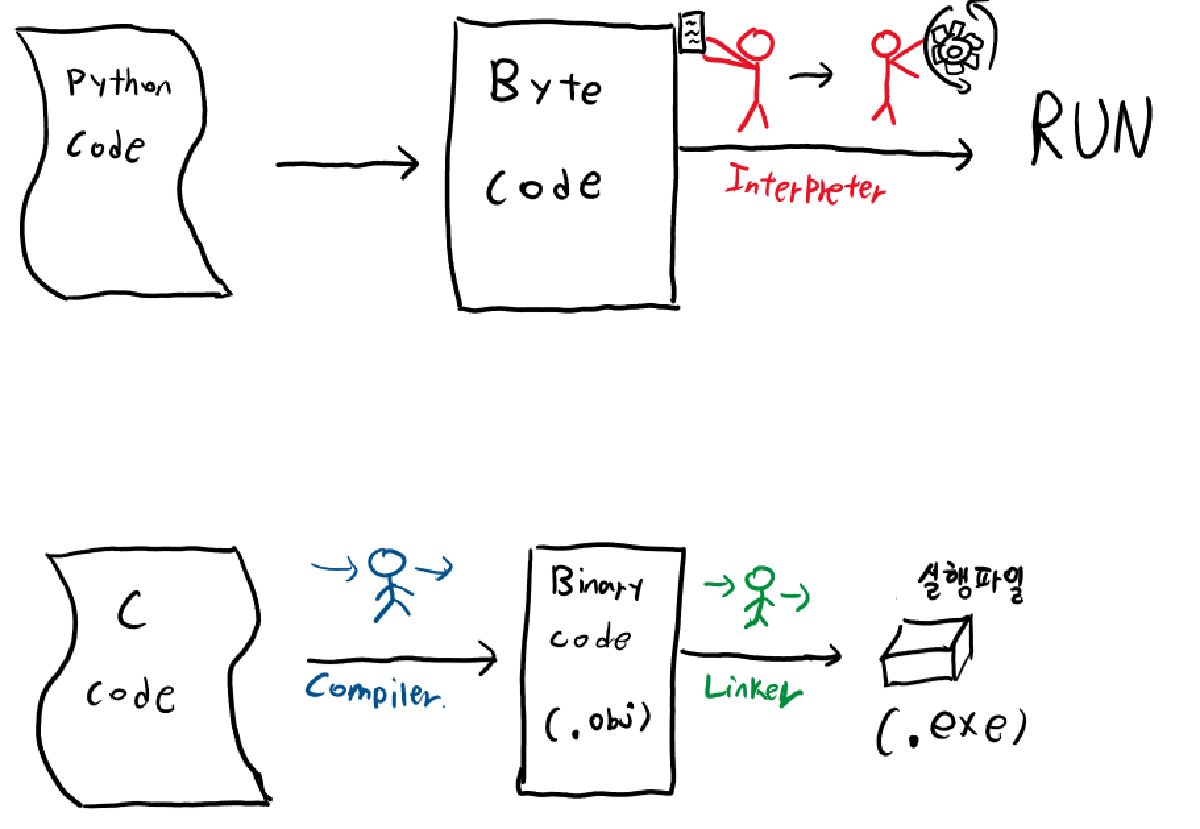 Python
Code
Byte
Code
Interpreter
RUN
C
code
Compiler.
Binary
code
(.obj)
Linker
실행파일
(.exe)